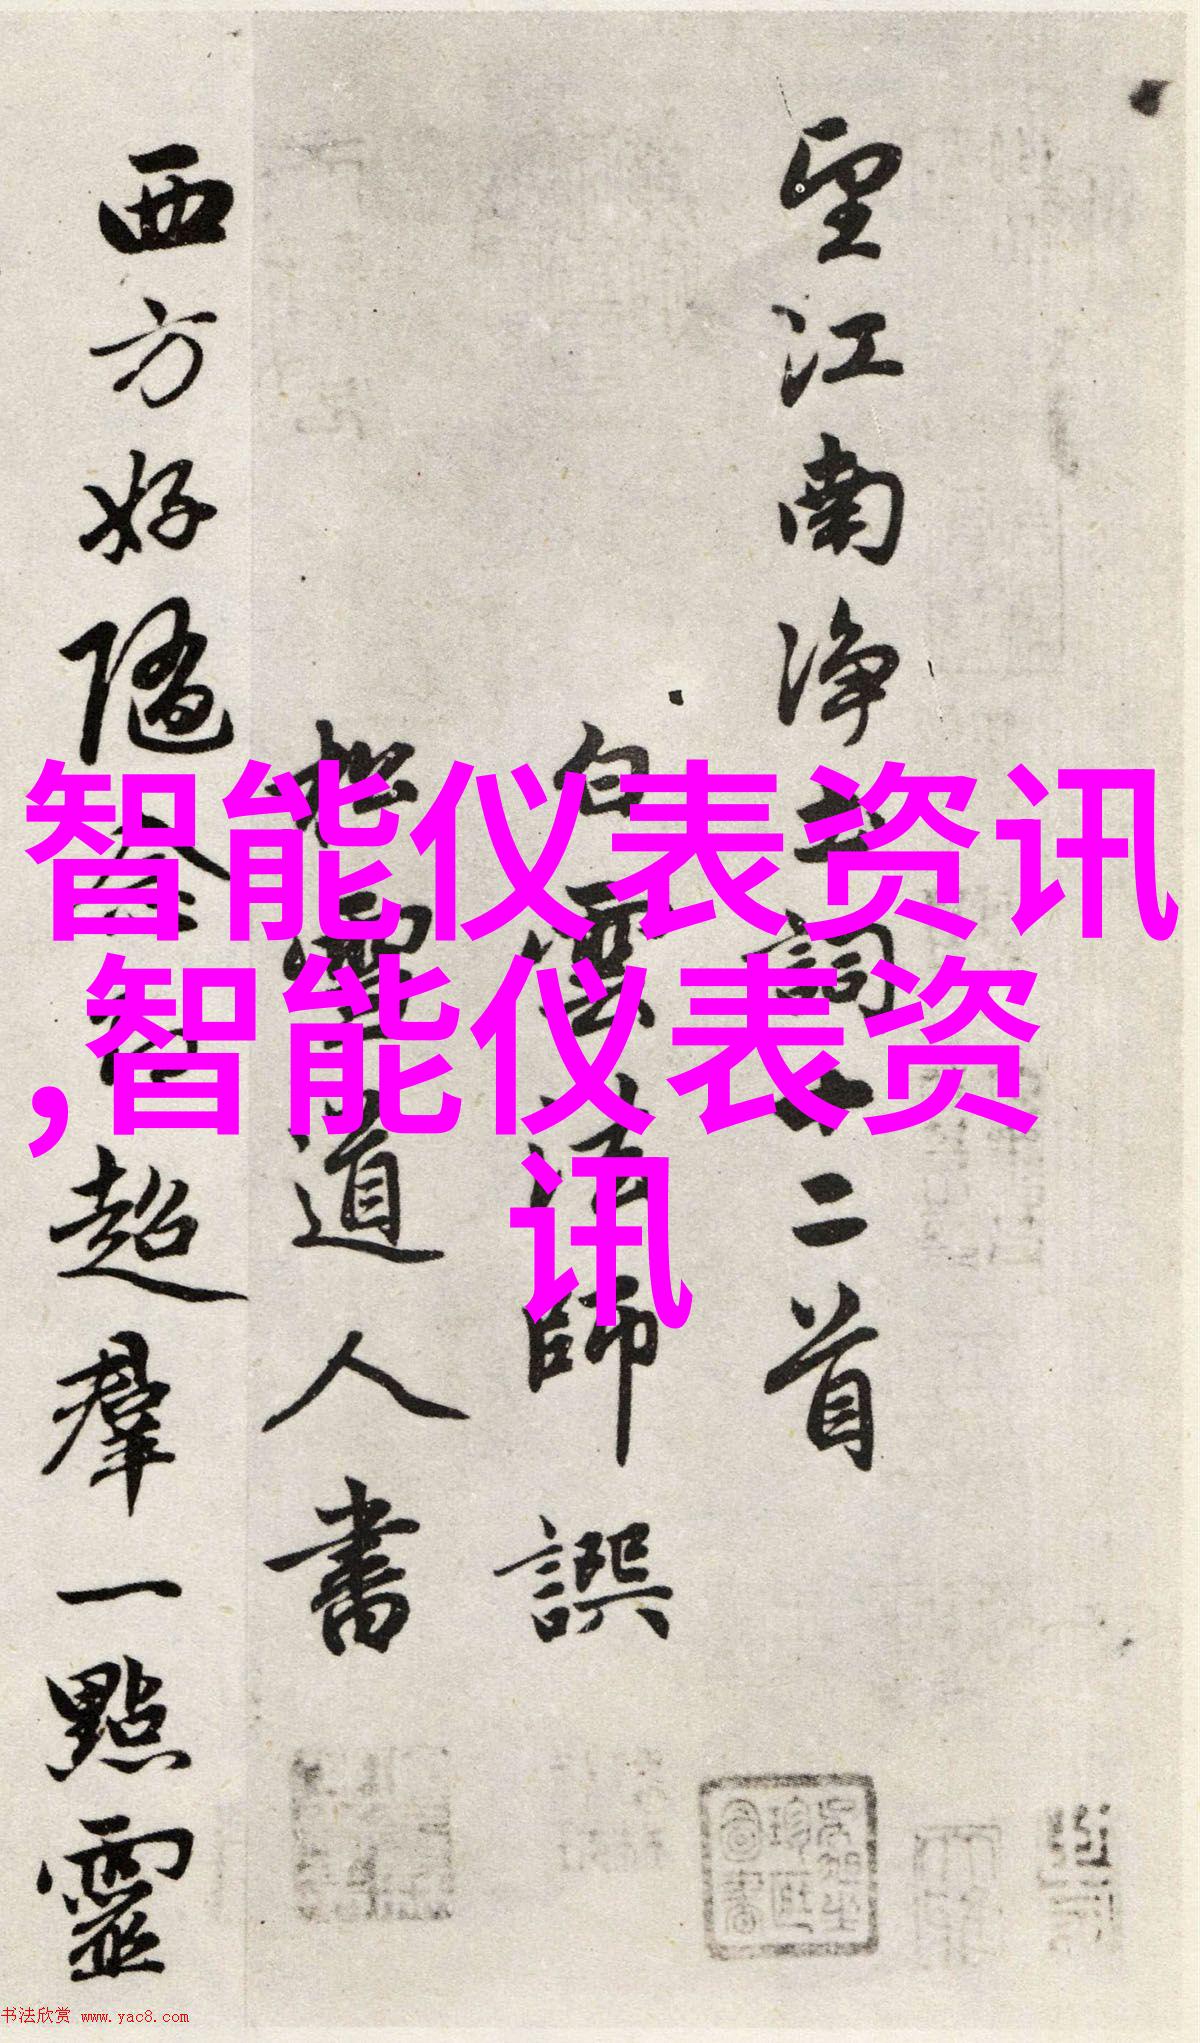 望江南净土詞十二首
白雲法師譔
松雪道人書
西方好隨
超羣一點靈
智能仪表资讯
,智能仪表资
讯
书法欣赏 www.yac8.com